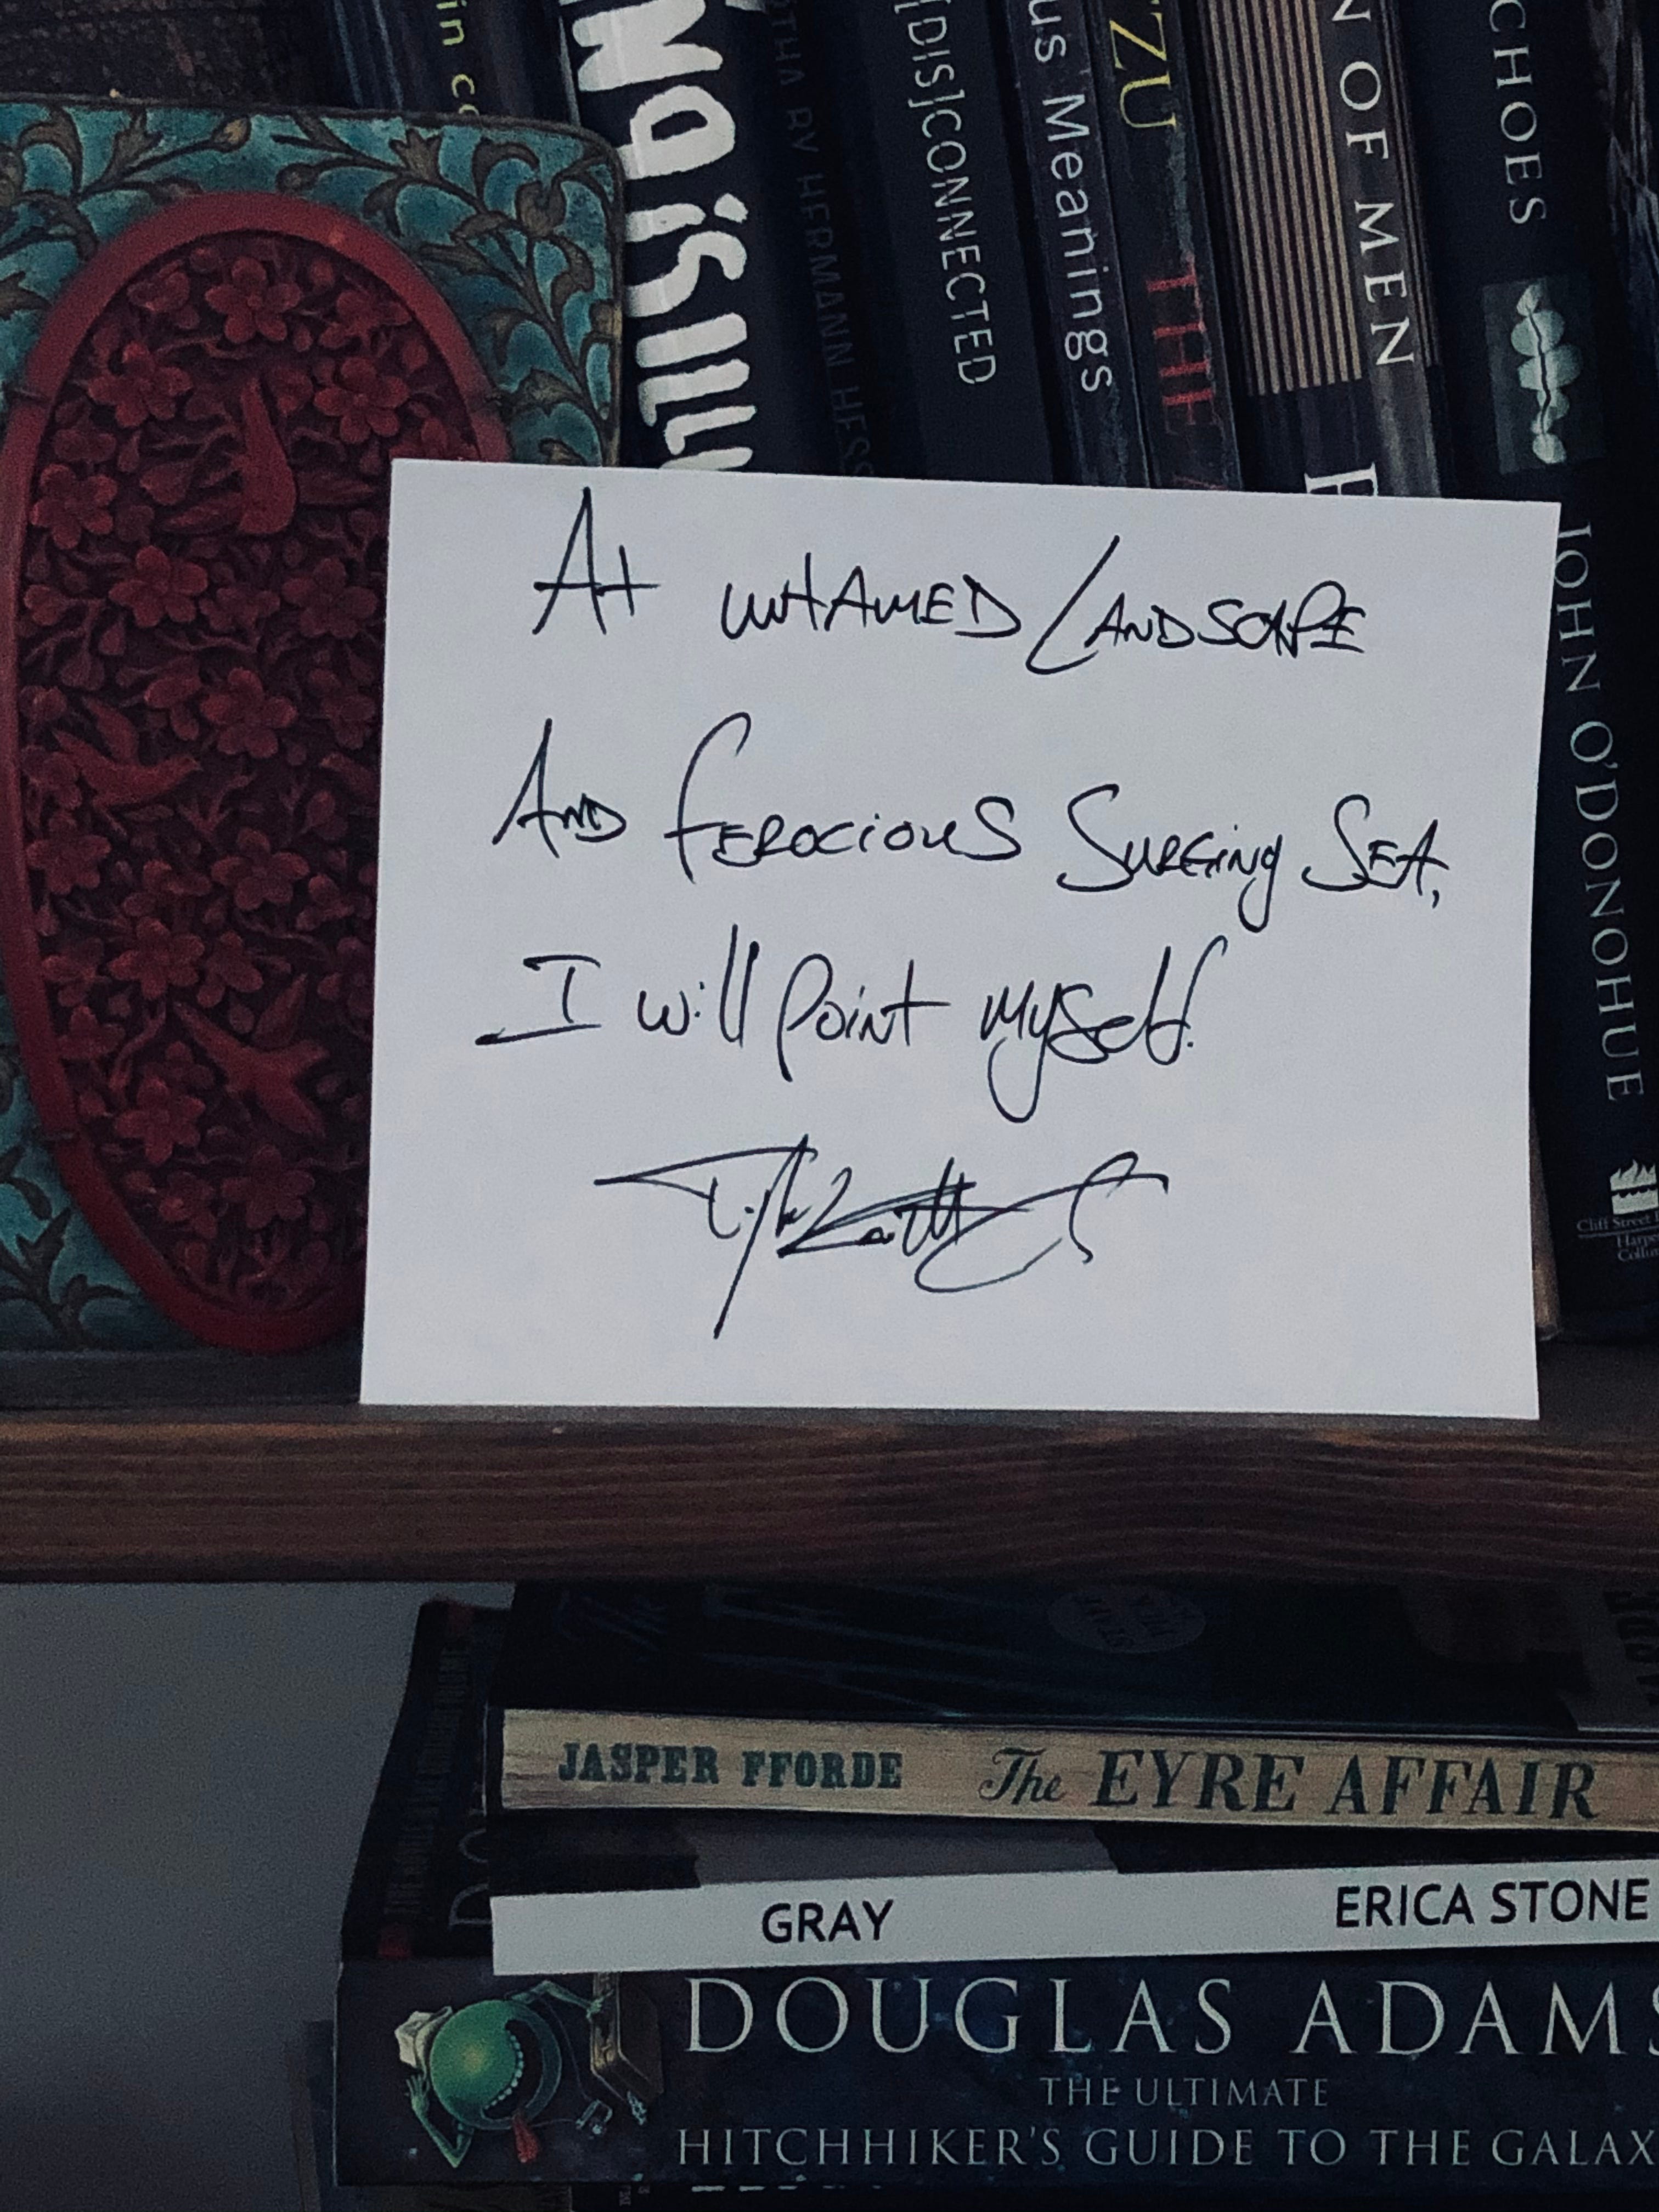 in
[DIS]CONNECTED
us Meanings
TZU
THE
N OF MEN
CHOES
JOHN O'DONOHUE
Cliff Street
Harper
Collin
THA BY HERMANN HESS
At UNTAMED LANDSCAPE
AND FEROCIOUS SURGING SEA,
I will point myself.
JASPER FFORDE The EYRE AFFAIR
GRAY ERICA STONE
DOUGLAS ADAMS
THE ULTIMATE
HITCHHIKER'S GUIDE TO THE GALAX